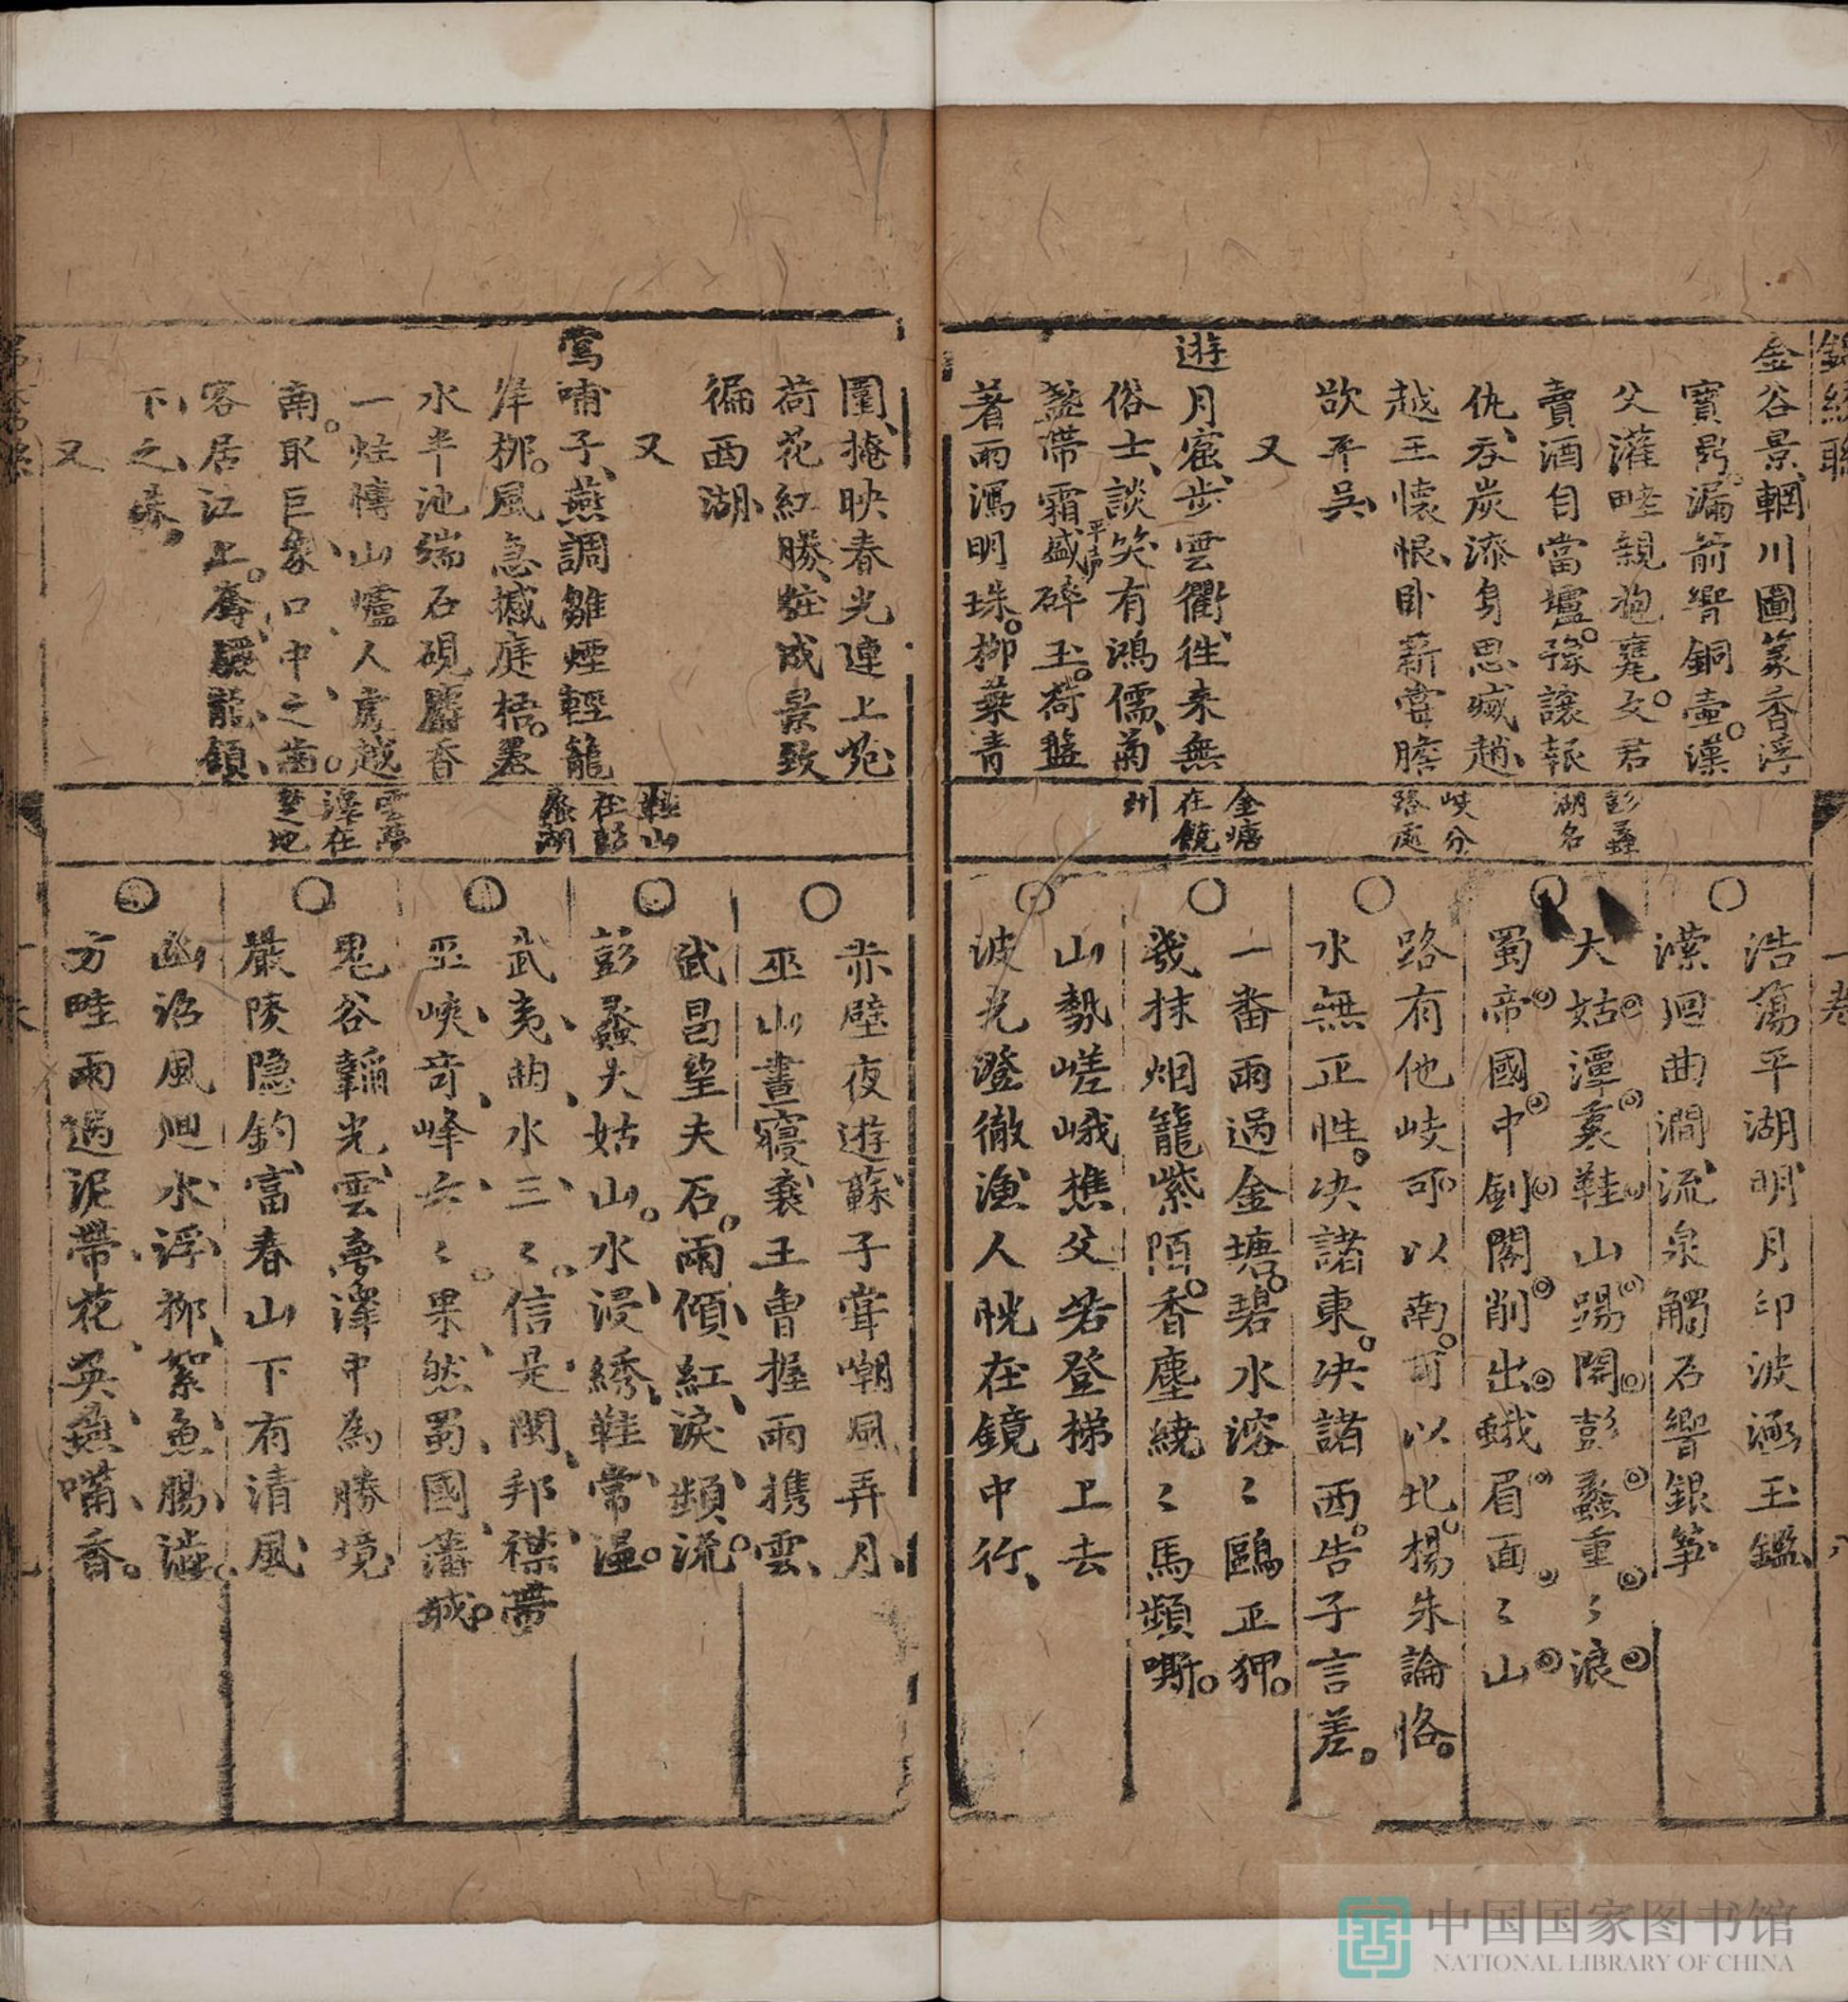 金谷景、輞川圖篆香浮
寳㔶。漏箭響銅壷。漢
父灌畦親抱甕。文君
賣酒自當壚。豫讓報
仇、吞炭漆身思滅趙、
越王懐恨、卧薪嘗膽
欲平吳、
又
遊月窟、步雲衢、徃来無
俗士、談笑有鴻儒、菊
盞帶霜盛平声碎玉。荷盤
著雨瀉明珠。栁葉青
彭蠡
湖名
岐分
路處
金塘
在饒
州
浩蕩平湖明月印波涵玉鑑、
瀠迴曲澗流泉觸石響銀筝
大姑潭裏鞋山踢開彭蠡重〻浪
蜀帝國中劍閣削出蛾眉面〻山
路有他岐可以南。可以北。楊朱論恪。
水無正性。决諸東。决諸西。告子言差。
一番雨過金塘。碧水溶〻鷗正狎。
幾抹烟籠紫陌。香塵繞〻馬頻嘶。
山勢嵯峨樵父若登梯上去
波光澄徹漁人恍在鏡中行、
圍、掩映春光連上苑、
荷花紅勝、粧成景致
徧西湖、
又
鶯哺子、燕調雛煙輕籠
岸栁。風急撼庭梧。墨
水半池端石硯麝香
一炷慱山爐人處越
南。取巨象、口中之齒。
客居江上。奪驪龍、頷、
下、之、珠、
又
鞋山
在彭
蠡湖
雲夢
澤在
楚地
赤壁夜遊蘇子聳嘲風、弄月、
巫山晝寢襄王曾握雨携雲、
武昌望夫石。雨傾、紅、淚、頻、流。
彭蠡大姑山。水浸、綉、鞋常、溫。
武夷、曲、水三、〻。信是、閩、邦、襟、帶
巫峽、竒、峰六、〻。果、然蜀、國、藩、城。
鬼谷韜光雲、夢澤中為勝境
嚴陵隐釣、富春山下有清風、
幽沼風迴水、浮、栁、絮魚、腸、澁。
方畦雨過泥帶、花、英、燕、嘴、香。